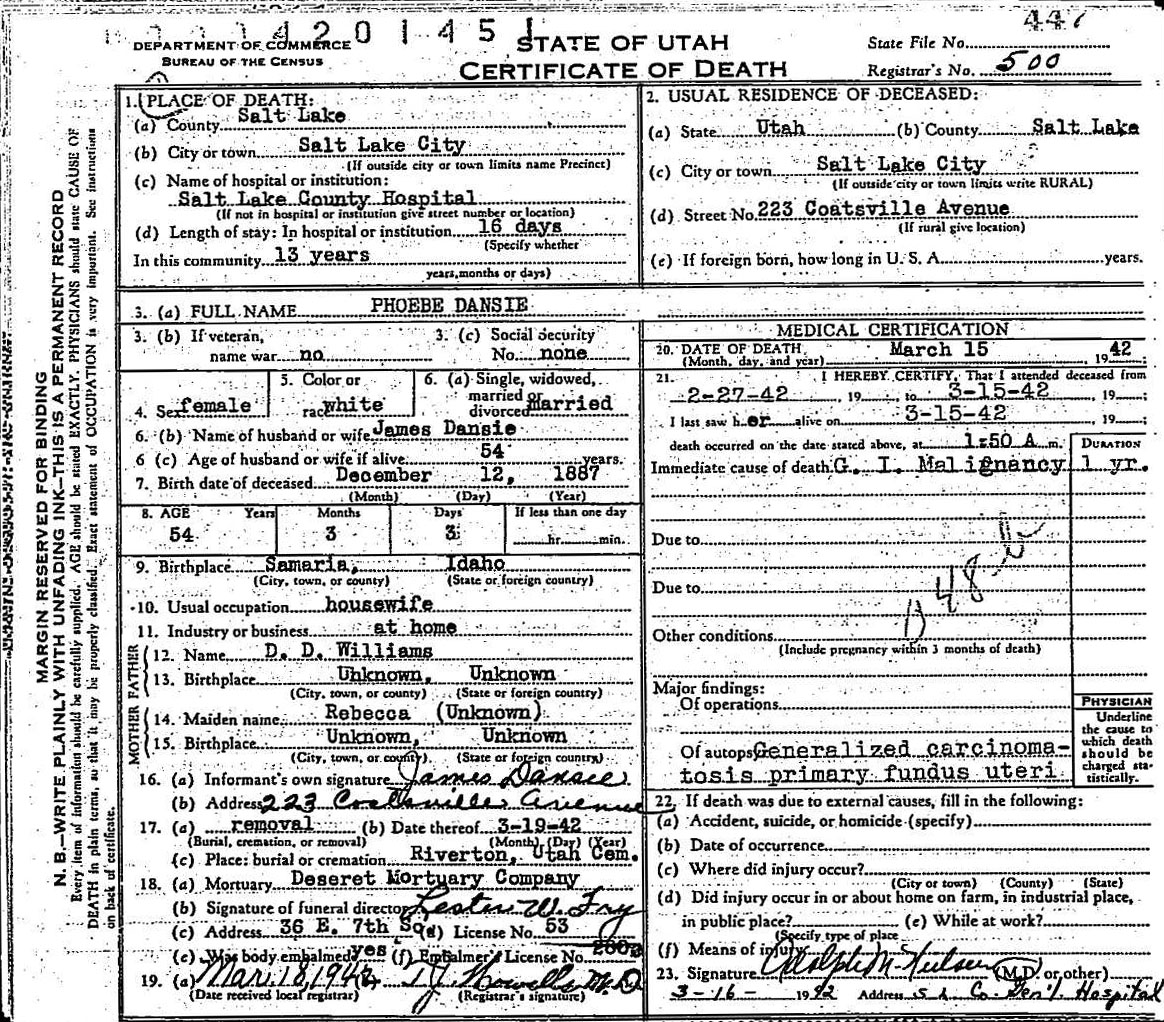 1420145
447
DEPARTMENT OF COMMERCE
BUREAU OF THE CENSUS
STATE OF UTAH
CERTIFICATE OF DEATH
State File No.
Registrar's No. 500
MARGIN RESERVED FOR BINDING
N. B.—WRITE PLAINLY WITH UNFADING INK—THIS IS A PERMANENT RECORD
Every item of information should be carefully supplied. AGE should be stated EXACTLY. PHYSICIANS should state CAUSE OF
DEATH in plain terms, so that it may be properly classified. Exact statement of OCCUPATION is very important. See instructions
on back of certificate.
1. PLACE OF DEATH:
(a) County Salt Lake
(b) City or town Salt Lake City
(If outside city or town limits name Precinct)
(c) Name of hospital or institution:
Salt Lake County Hospital
(If not in hospital or institution give street number or location)
(d) Length of stay: In hospital or institution 16 days
(Specify whether
In this community 13 years
years, months or days)
2. USUAL RESIDENCE OF DECEASED:
(a) State Utah (b) County Salt Lake
(c) City or town Salt Lake City
(If outside city or town limits write RURAL)
(d) Street No. 223 Coatsville Avenue
(If rural give location)
(e) If foreign born, how long in U. S. A. years.
3. (a) FULL NAME PHOEBE DANSIE
3. (b) If veteran, name war no
3. (c) Social security No. none
4. Sex female
5. Color or race white
6. (a) Single, widowed, married or divorced married
6. (b) Name of husband or wife James Dansie
6 (c) Age of husband or wife if alive 54 years.
7. Birth date of deceased December 12, 1887
(Month) (Day) (Year)
8. AGE Years Months Days If less than one day
54 3 3 hr. min.
9. Birthplace Samaria, Idaho
(City, town, or county) (State or foreign country)
10. Usual occupation housewife
11. Industry or business at home
FATHER
12. Name D. D. Williams
13. Birthplace Unknown, Unknown
(City, town, or county) (State or foreign country)
MOTHER
14. Maiden name Rebecca (Unknown)
15. Birthplace Unknown, Unknown
(City, town, or county) (State or foreign country)
16. (a) Informant's own signature James Dansie
(b) Address 223 Coatsville Avenue
17. (a) removal (b) Date thereof 3-19-42
(Burial, cremation, or removal) (Month) (Day) (Year)
(c) Place: burial or cremation Riverton, Utah Cem.
18. (a) Mortuary Deseret Mortuary Company
(b) Signature of funeral director Lester W. Fry
(c) Address 36 E. 7th So. (d) License No. 53
(e) Was body embalmed yes (f) Embalmer's License No.
19. (a) Mar. 18, 1942 T.J. Howells M.D
(Date received local registrar) (Registrar's signature)
MEDICAL CERTIFICATION
20. DATE OF DEATH March 15 19 42
(Month, day, and year)
21. I HEREBY CERTIFY, That I attended deceased from
2-27-42 19 to 3-15-42 19 ;
I last saw her alive on 3-15-42 19 ;
death occurred on the date stated above, at 1:50 A m.
DURATION
Immediate cause of death G. I. Malignancy 1 yr.
Due to
Due to
48
Other conditions
(Include pregnancy within 3 months of death)
Major findings:
Of operations
Of autopsy Generalized carcinoma-
tosis primary fundus uteri
PHYSICIAN
Underline
the cause to
which death
should be
charged sta-
tistically.
22. If death was due to external causes, fill in the following:
(a) Accident, suicide, or homicide (specify)
(b) Date of occurrence
(c) Where did injury occur?
(City or town) (County) (State)
(d) Did injury occur in or about home on farm, in industrial place,
in public place? (e) While at work?
(Specify type of place
(f) Means of injury
23. Signature Adolph M. Nielsen (M.D. or other)
3-16- 1942 Address S. L. Co. Gen'l. Hospital